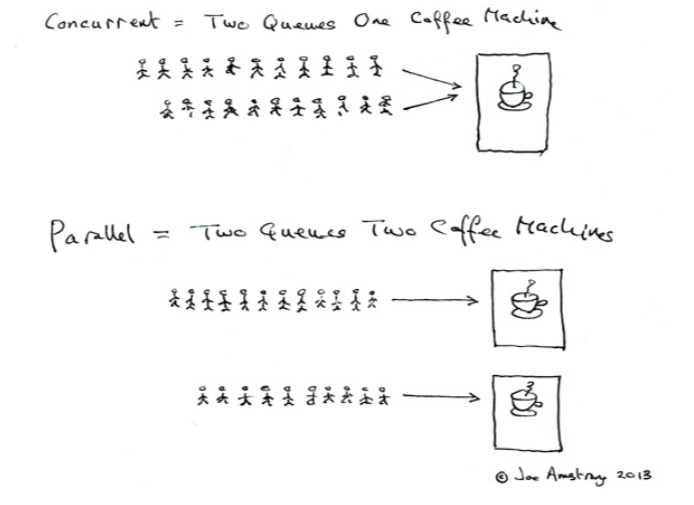 Concurrent = Two Queues One Coffee Machine
Parallel = Two Queues Two Coffee Machines
© Joe Armstrong 2013